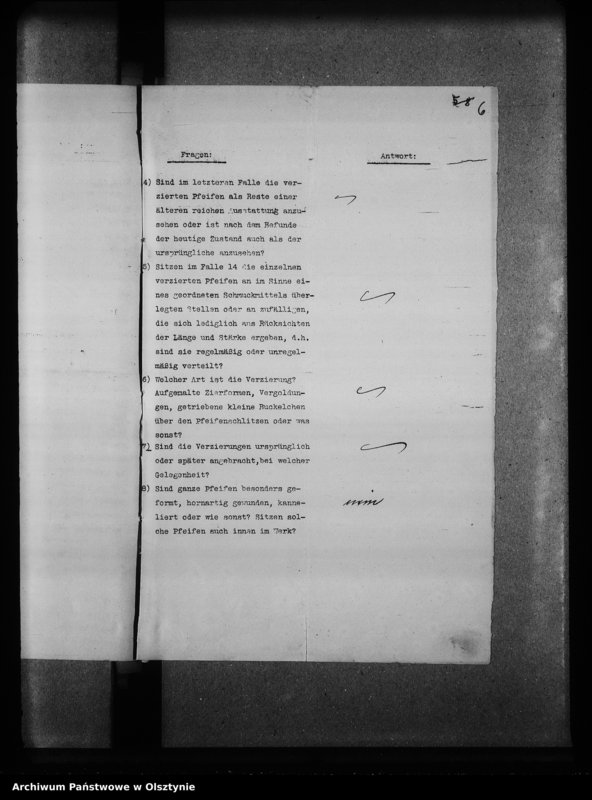 58 6
Fragen: Antwort:
4) Sind im letzteren Falle die ver-
zierten Pfeifen als Reste einer
älteren reichen Ausstattung anzu-
sehen oder ist nach dem Befunde
der heutige Zustand auch als der
ursprüngliche anzusehen?
5) Sitzen im Falle 14 die einzelnen
verzierten Pfeifen an im Sinne ei-
nes geordneten Schmuckmittels über-
legten Stellen oder an zufälligen,
die sich lediglich aus Rücksichten
der Länge und Stärke ergeben, d.h.
sind sie regelmäßig oder unregel-
mäßig verteilt?
6) Welcher Art ist die Verzierung?
Aufgemalte Zierformen, Vergoldun-
gen, getriebene kleine Buckelchen
über den Pfeifenschlitzen oder was
sonst?
7) Sind die Verzierungen ursprünglich
oder später angebracht,bei welcher
Gelegenheit?
8) Sind ganze Pfeifen besonders ge-
formt, hornartig gewunden, kanne-
liert oder wie sonst? Sitzen sol-
che Pfeifen auch innen im Werk?
nein
Archiwum Państwowe w Olsztynie